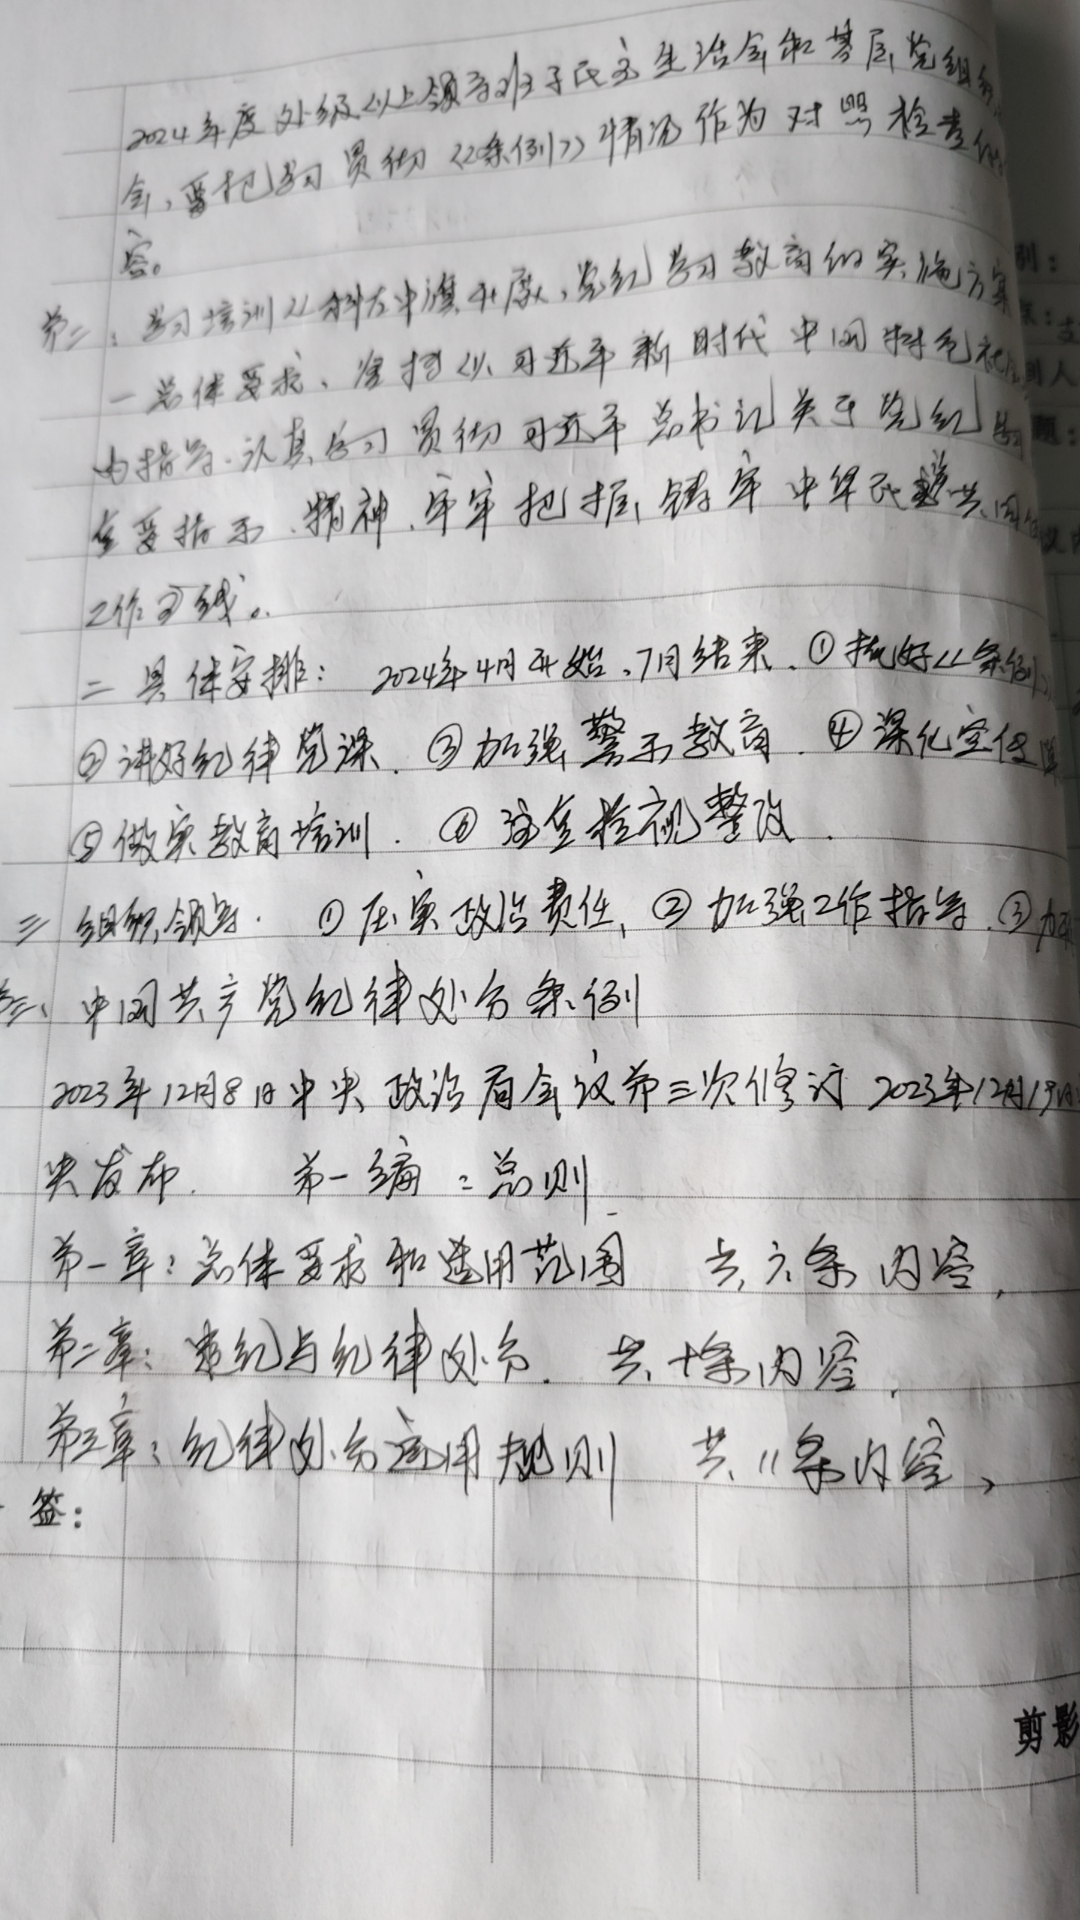 2024年度处级以上领导班子民主生活会和基层党组织
会,要把学习贯彻《条例》情况作为对照检查
容。
第二:学习培训《科左中旗开展党纪学习教育的实施方案
一总体要求、坚持以习近平新时代中国特色社
为指导.认真学习贯彻习近平总书记关于党纪学
重要指示.精神.牢牢把握铸牢中华民族共同
工作主线。
二具体安排: 2024年4月开始、7月结束.①抓好《条例》
②讲好纪律党课.③加强警示教育.④深化宣传
⑤做实教育培训.⑥注重检视整改.
三组织领导.①压实政治责任,②加强工作指导.③加
第三、中国共产党纪律处分条例
2023年12月8日中央政治局会议第三次修订 2023年12月19日
央发布. 第一编:总则
第一章:总体要求和适用范围 共六条内容,
第二章:违纪与纪律处分. 共十条内容,
第三章:纪律处分适用规则 共11条内容、
签:
剪影
别:
到人
题: